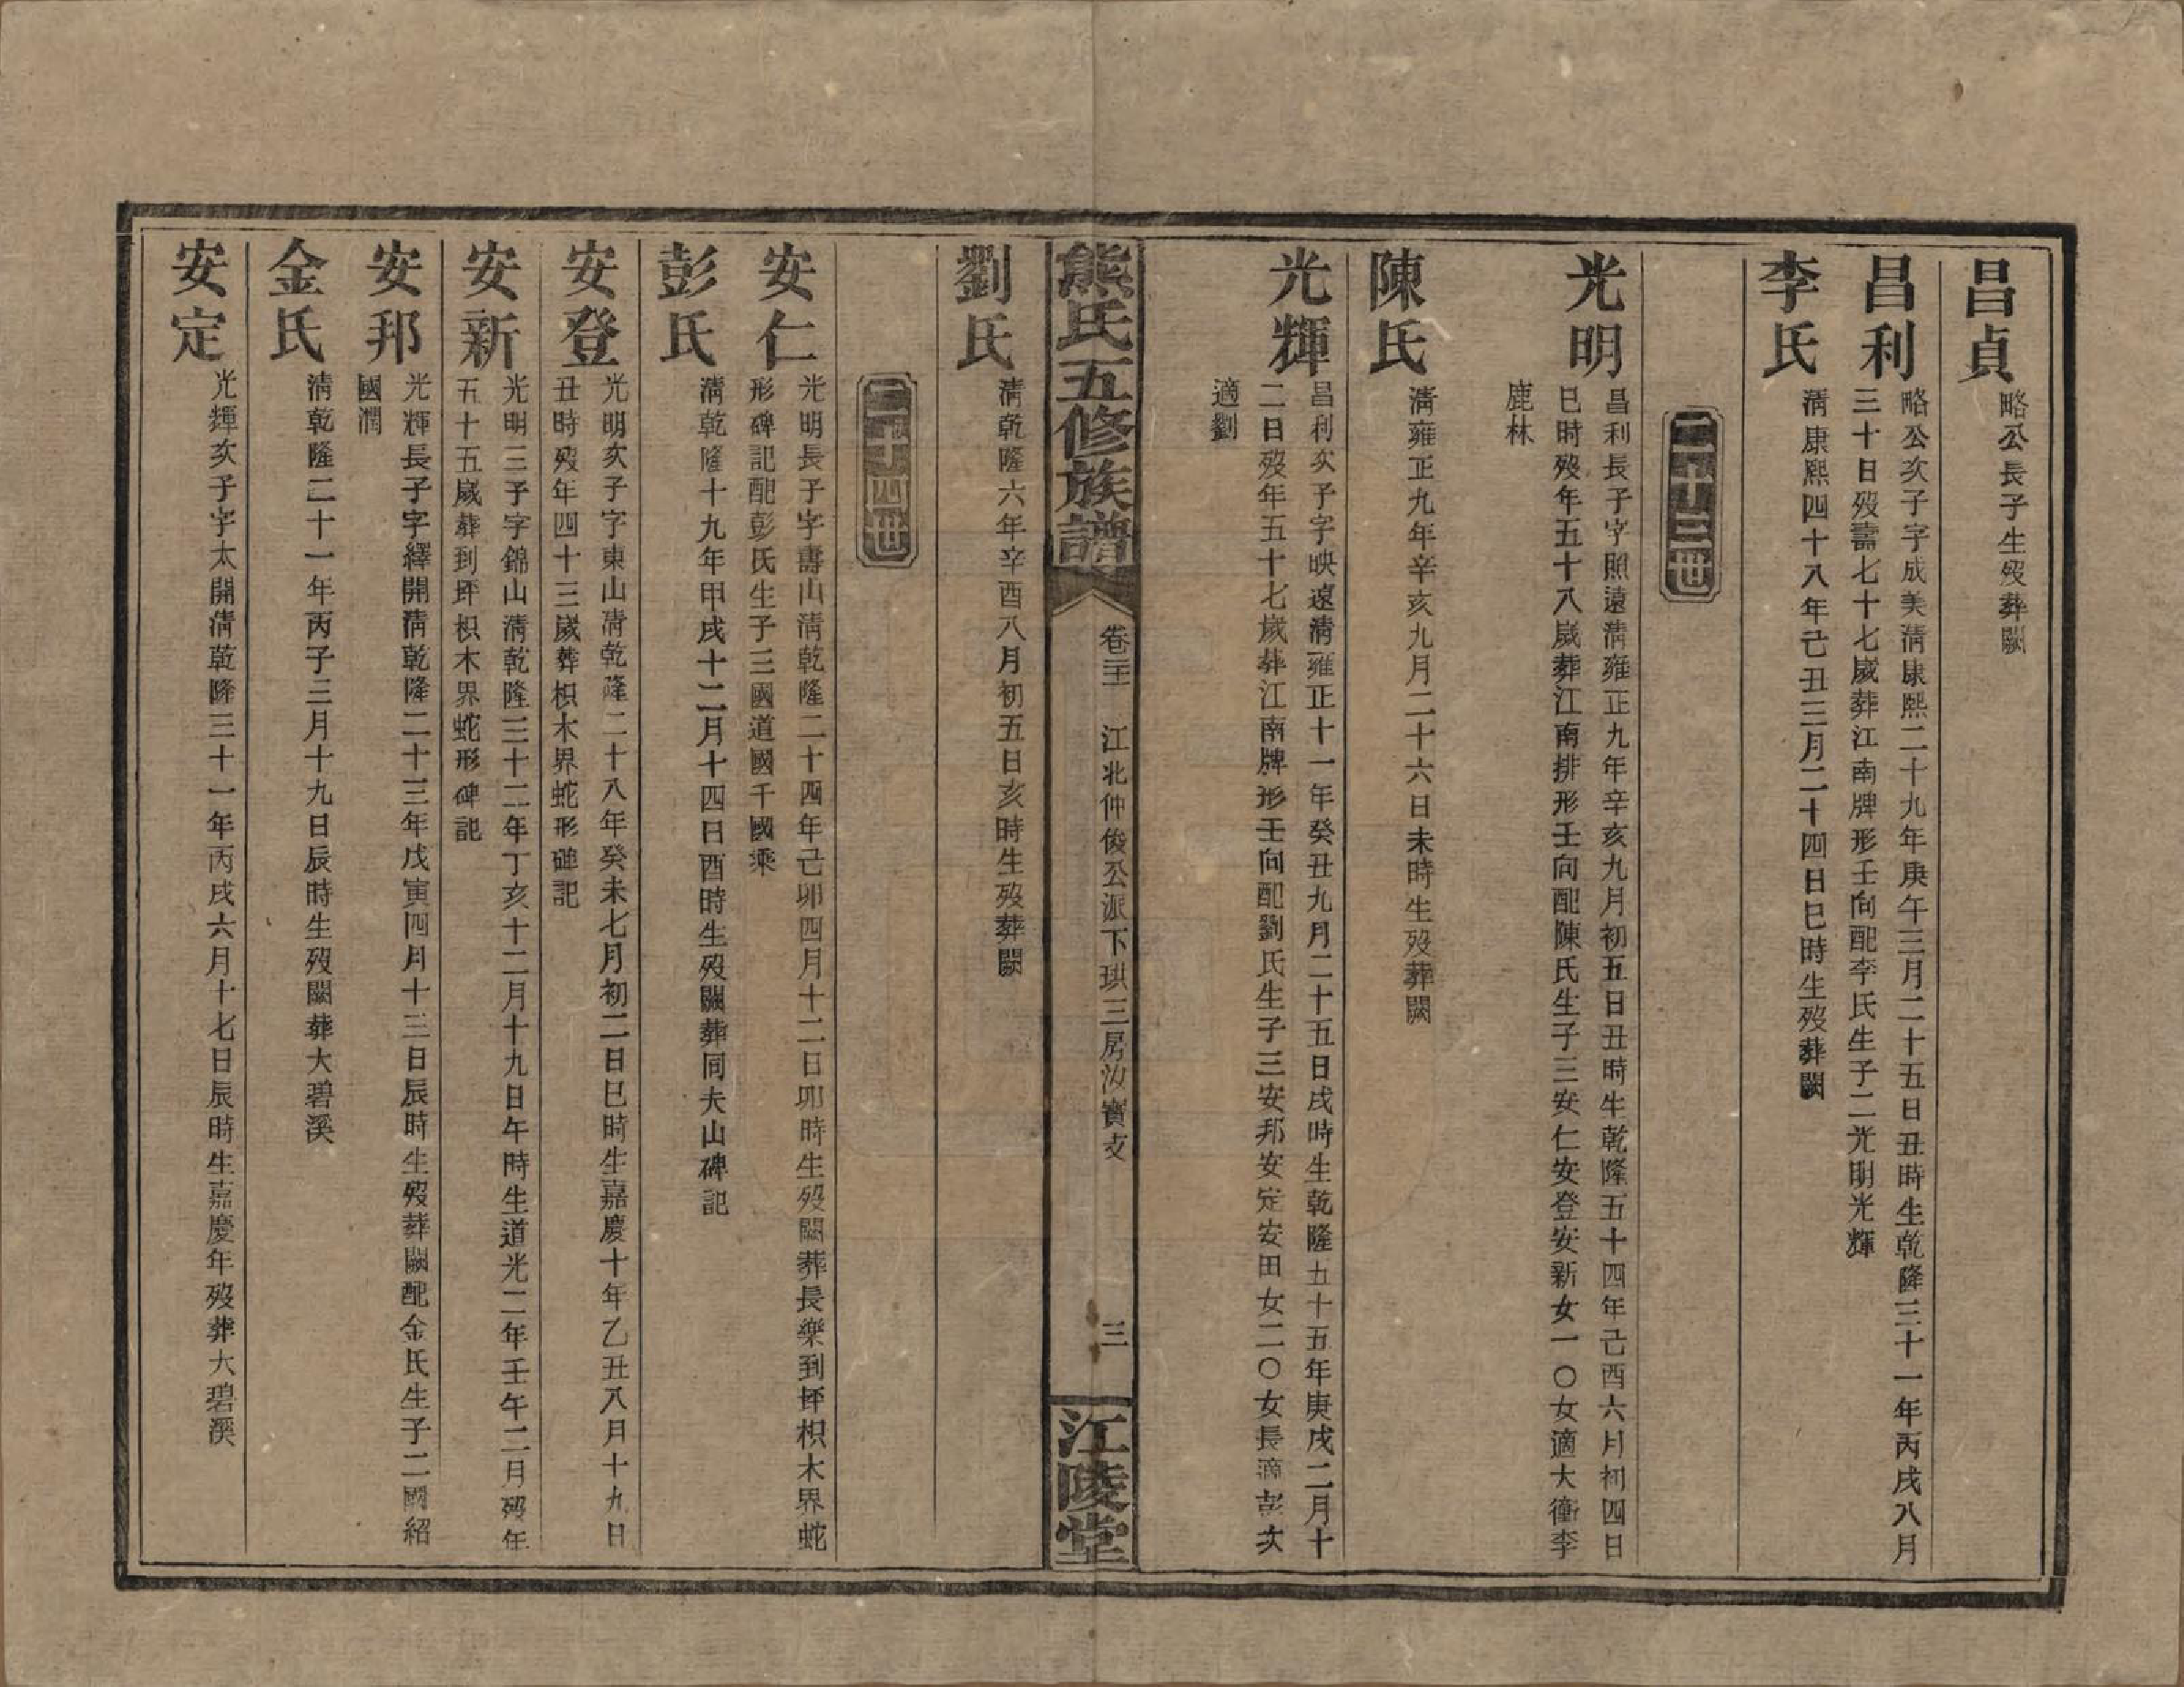 昌貞
略公長子生歿葬闕
昌利
略公次子字成美清康熙二十九年庚午三月二十五日丑時生乾隆三十一年丙戌八月
三十日歿壽七十七歲葬江南牌形壬向配李氏生子二光明光輝
李氏
清康熙四十八年己丑三月二十四日巳時生歿葬闕
二十三世
光明
昌利長子字照遠清雍正九年辛亥九月初五日丑時生乾隆五十四年己酉六月初四日
巳時歿年五十八歲葬江南排形壬向配陳氏生子三安仁安登安新女一〇女適大衝李
鹿林
陳氏
清雍正九年辛亥九月二十六日未時生歿葬闕
光輝
昌利次子字映遠清雍正十一年癸丑九月二十五日戌時生乾隆五十五年庚戌二月十
二日歿年五十七歲葬江南牌形壬向配劉氏生子三安邦安定安田女二〇女長適彭次
適劉
熊氏五修族譜
卷三十
江北仲俊公派下珙三房汝寶支
三
江陵堂
劉氏
清乾隆六年辛酉八月初五日亥時生歿葬闕
二十四世
安仁
光明長子字壽山清乾隆二十四年己卯四月十二日卯時生歿闕葬長樂到坪枳木界蛇
形碑記配彭氏生子三國道國千國乘
彭氏
清乾隆十九年甲戌十二月十四日酉時生歿闕葬同夫山碑記
安登
光明次子字東山清乾隆二十八年癸未七月初二日巳時生嘉慶十年乙丑八月十九日
丑時歿年四十三歲葬枳木界蛇形碑記
安新
光明三子字錦山清乾隆三十二年丁亥十二月十九日午時生道光二年壬午二月歿年
五十五歲葬到坪枳木界蛇形碑記
安邦
光輝長子字繹開清乾隆二十三年戊寅四月十三日辰時生歿葬闕配金氏生子二國紹
國潤
金氏
清乾隆二十一年丙子三月十九日辰時生歿闕葬大碧溪
安定
光輝次子字太開清乾隆三十一年丙戌六月十七日辰時生嘉慶年歿葬大碧溪